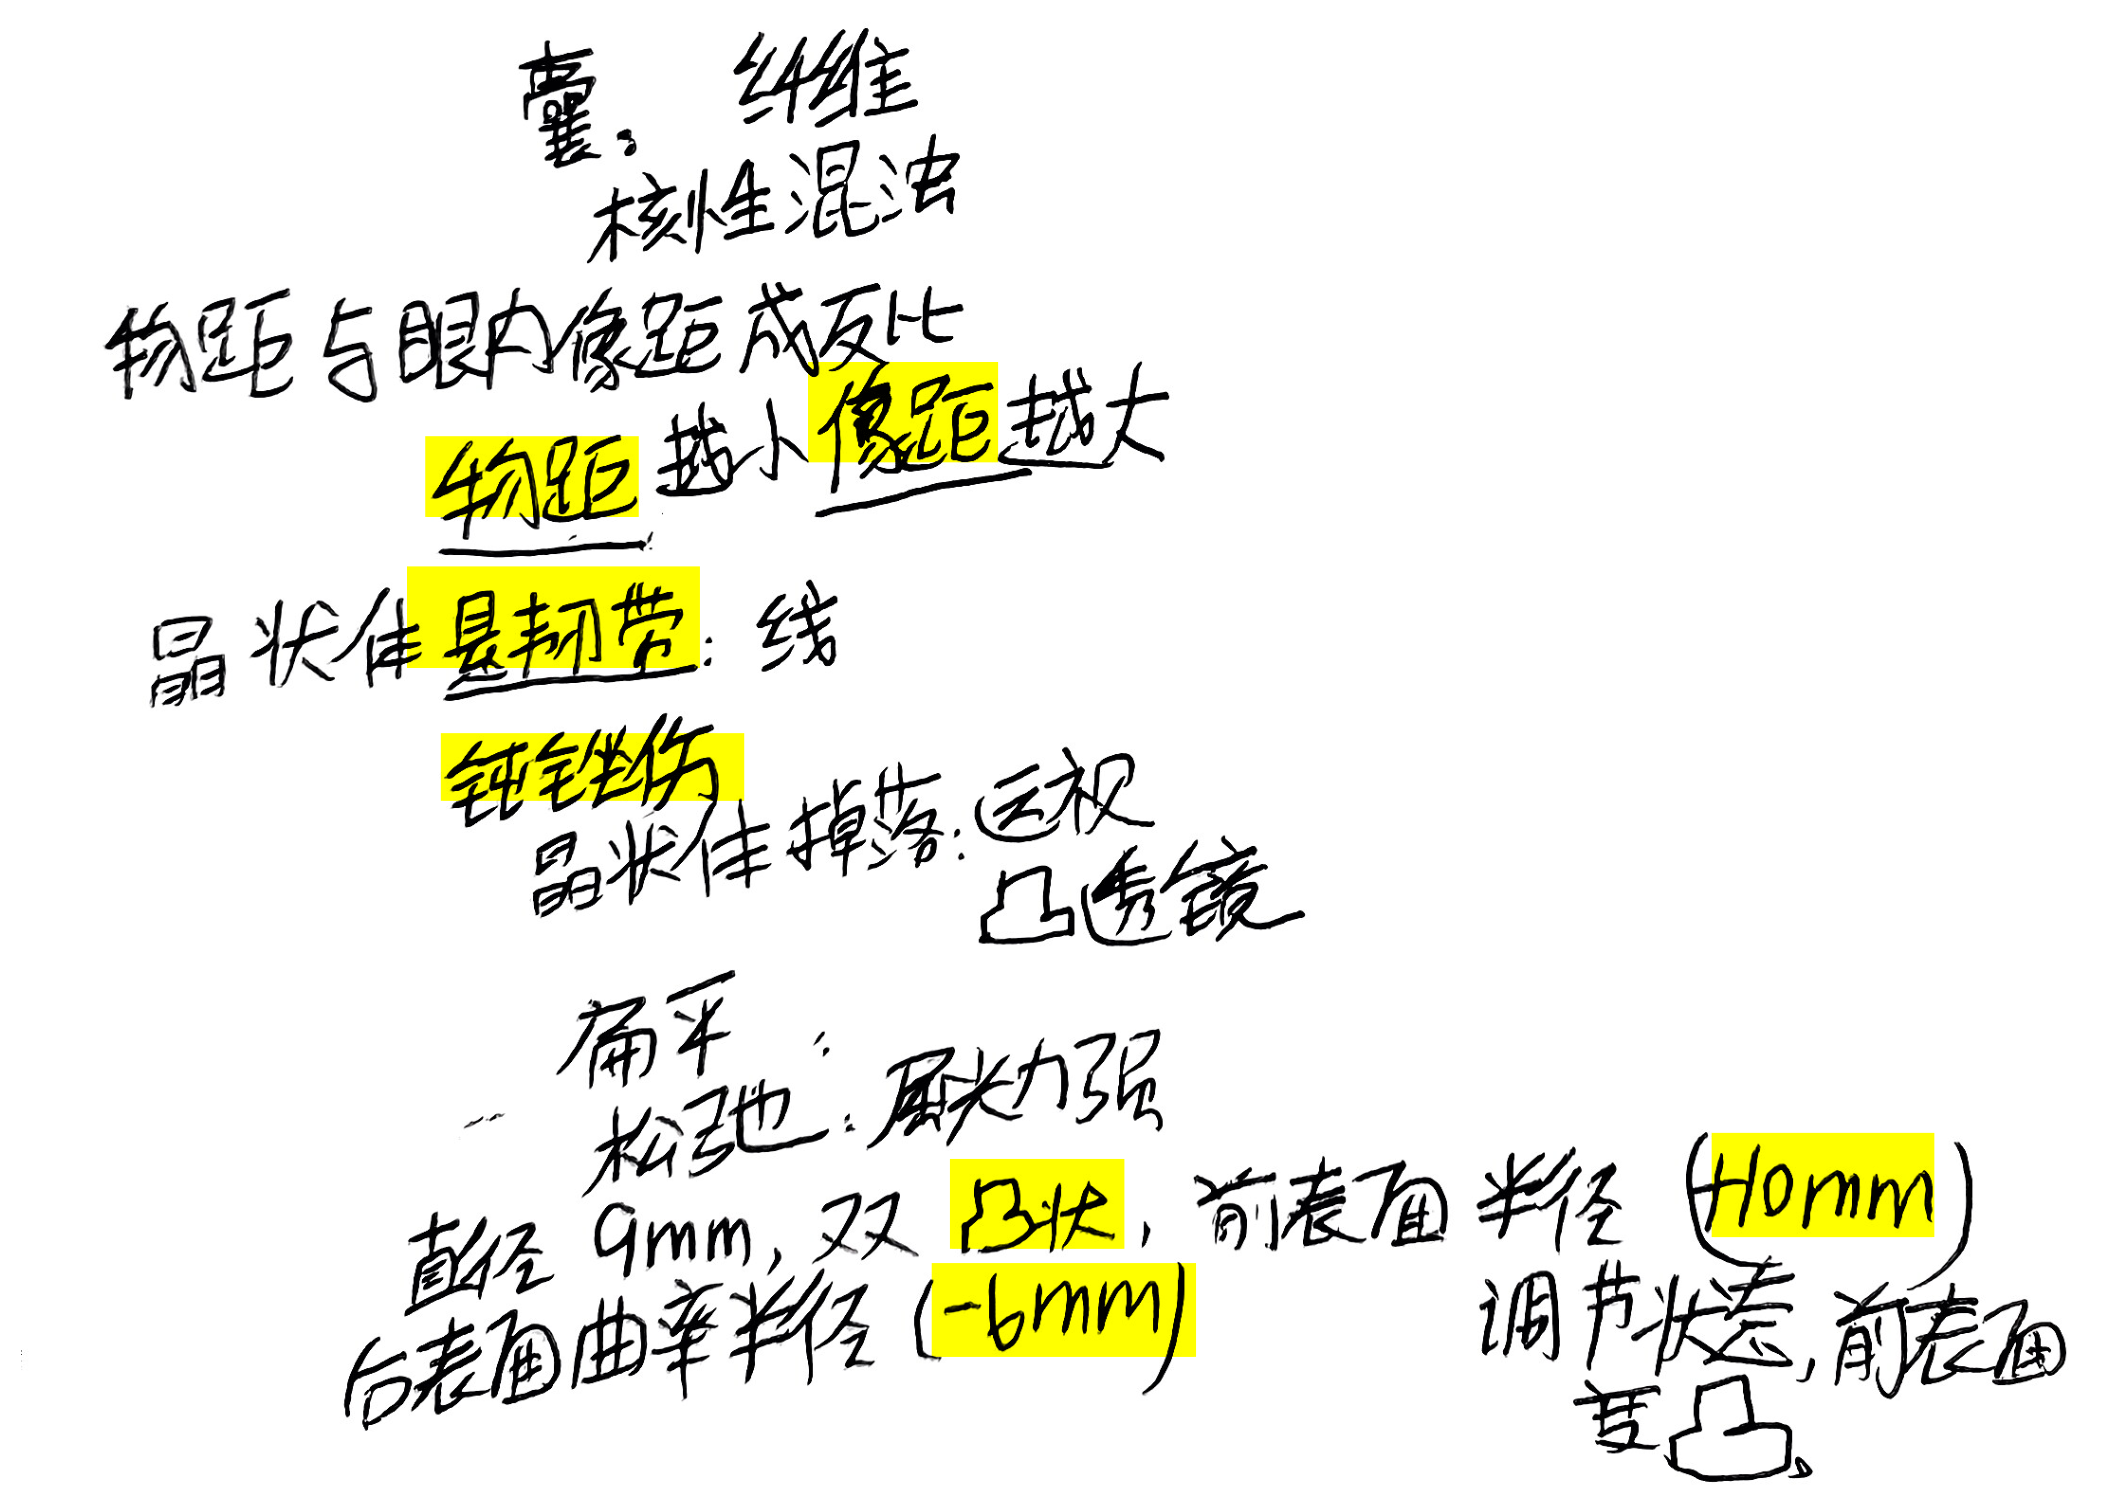 囊: 纤维
核性混浊
物距与眼内像距成反比
物距越小像距越大
晶状体悬韧带: 线
钝锉伤
晶状体掉落: 远视
凸透镜
扁平:
松弛: 屈光力强
直径 9mm, 双凸状, 前表面半径 (+10mm)
后表面曲率半径 (-6mm)
调节状态, 前表面
变凸